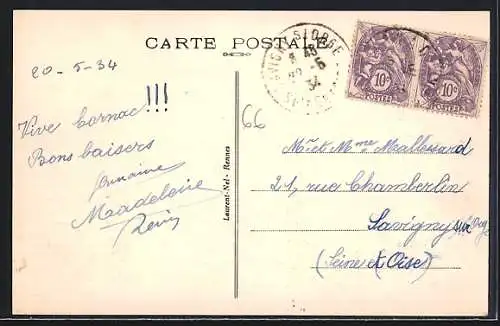 CARTE POSTALE
20-5-34
Vive Carnac!!!
Bons baisers
Madeleine
Rémy
Laurent-Nel - Rennes
66
10c
POSTES
10c
POSTES
Mr et Mme Mallouard
21, rue Chamberlin
Savigny sur Orge
(Seine et Oise)